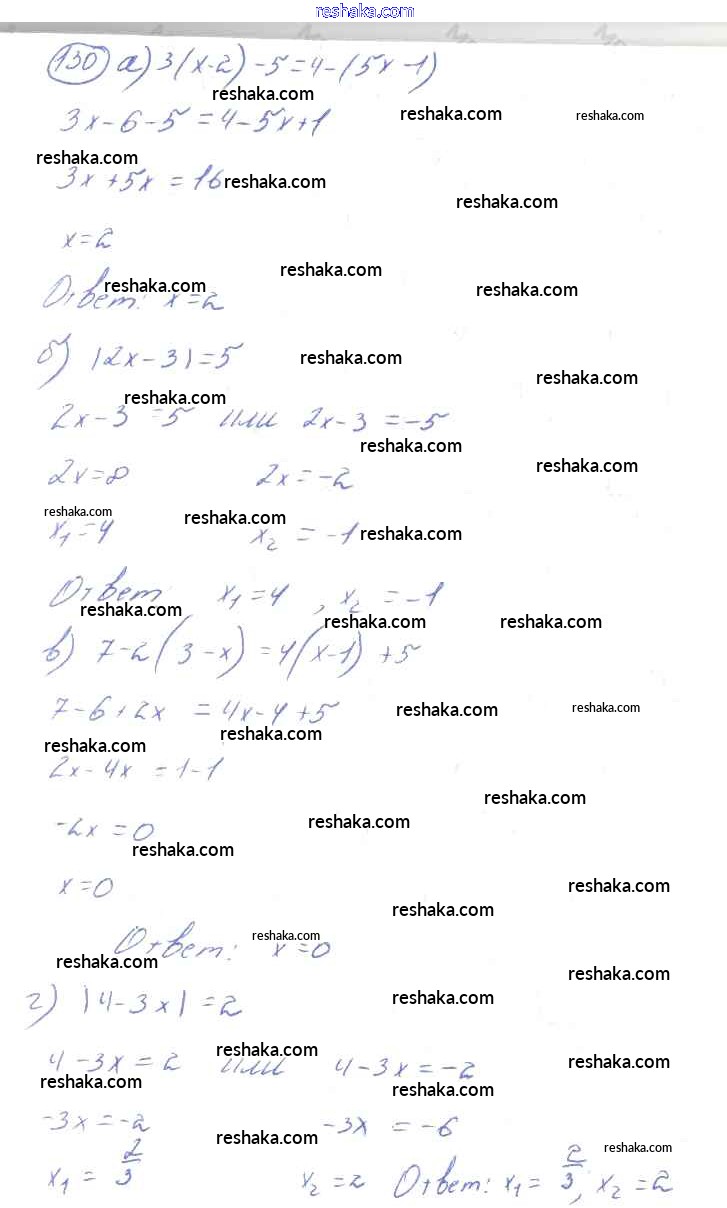 reshaka.com
130 а) 3(x-2)-5=4-(5x-1)
reshaka.com
3x-6-5=4-5x+1
reshaka.com reshaka.com
reshaka.com
3x+5x=16
reshaka.com
reshaka.com
x=2
reshaka.com
Ответ: x=2
reshaka.com
reshaka.com
б) |2x-3|=5
reshaka.com
reshaka.com
reshaka.com
2x-3=5 или 2x-3=-5
reshaka.com
2x=8 2x=-2
reshaka.com
reshaka.com
reshaka.com
x₁=4 x₂=-1
reshaka.com
Ответ x₁=4, x₂=-1
reshaka.com
reshaka.com reshaka.com
в) 7-2(3-x)=4(x-1)+5
7-6+2x=4x-4+5
reshaka.com reshaka.com
reshaka.com
reshaka.com
2x-4x=1-1
reshaka.com
-2x=0
reshaka.com
reshaka.com
x=0
reshaka.com
reshaka.com
Ответ: x=0
reshaka.com
reshaka.com
reshaka.com
г) |4-3x|=2
reshaka.com
4-3x=2 или 4-3x=-2
reshaka.com
reshaka.com
reshaka.com
reshaka.com
-3x=-2 -3x=-6
reshaka.com
reshaka.com
x₁=2/3 x₂=2 Ответ: x₁=2/3, x₂=2